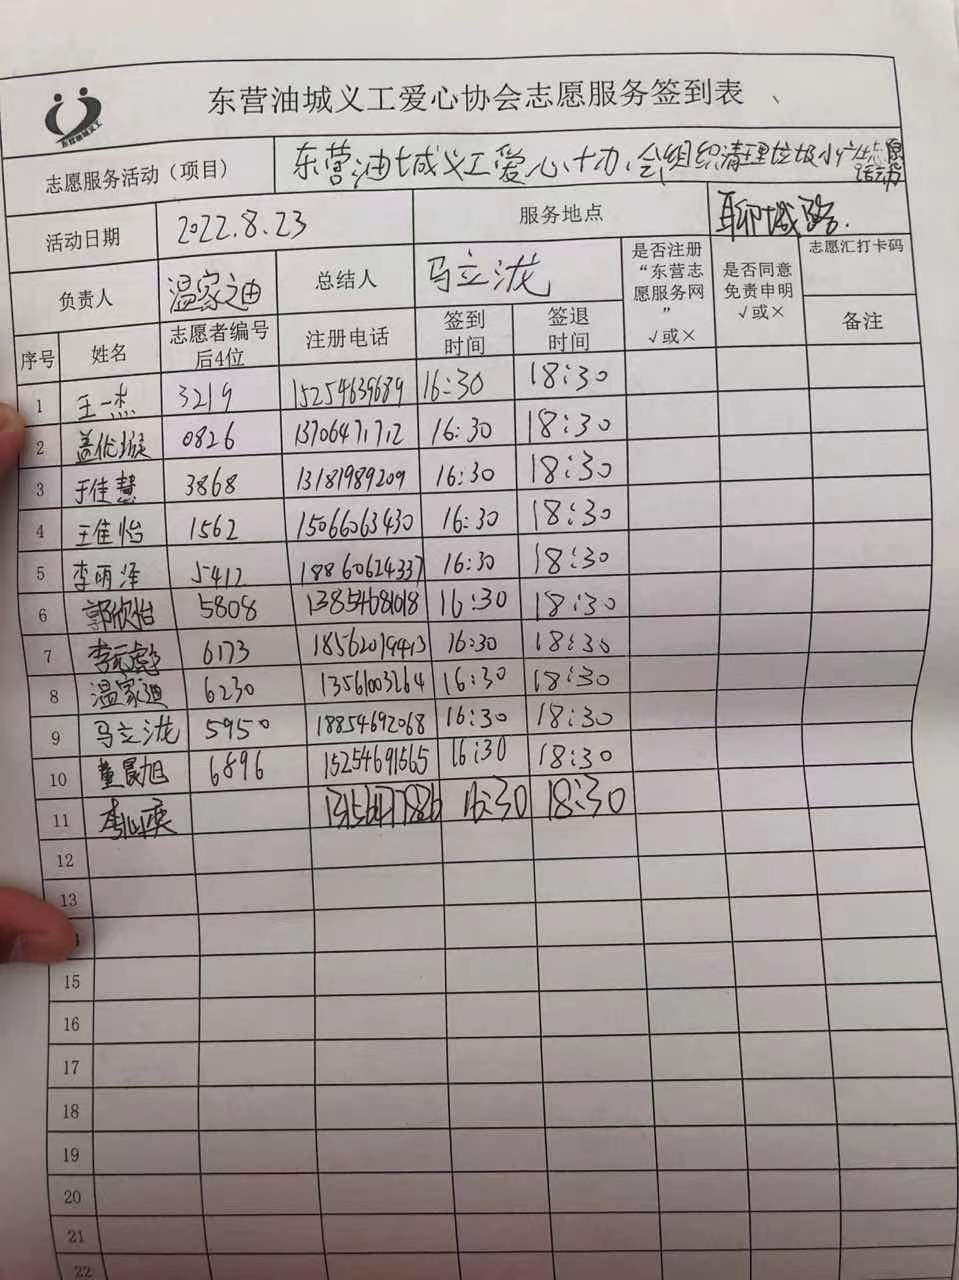 东营油城义工
东营油城义工爱心协会志愿服务签到表
志愿服务活动（项目） 东营油城义工爱心协会组织清理垃圾小广告志愿活动
活动日期 2022.8.23 服务地点 聊城路.
负责人 温家迪 总结人 马立泷 是否注册“东营志愿服务网” √或× 是否同意免责申明 √或× 志愿汇打卡码
序号 姓名 志愿者编号后4位 注册电话 签到时间 签退时间 备注
1 王一杰 3219 15254639689 16:30 18:30
2 盖优璇 0826 13706471712 16:30 18:30
3 于佳慧 3868 13181989209 16:30 18:30
4 王佳怡 1562 15066063430 16:30 18:30
5 李明泽 5412 18860624337 16:30 18:30
6 郭欣怡 5808 13854681018 16:30 18:30
7 6173 18562079413 16:30 18:30
8 温家迪 6230 13561003264 16:30 18:30
9 马立泷 5950 18854692068 16:30 18:30
10 董晨旭 6896 15254691565 16:30 18:30
11 16:30 18:30
12
13
15
16
17
18
19
20
21
22